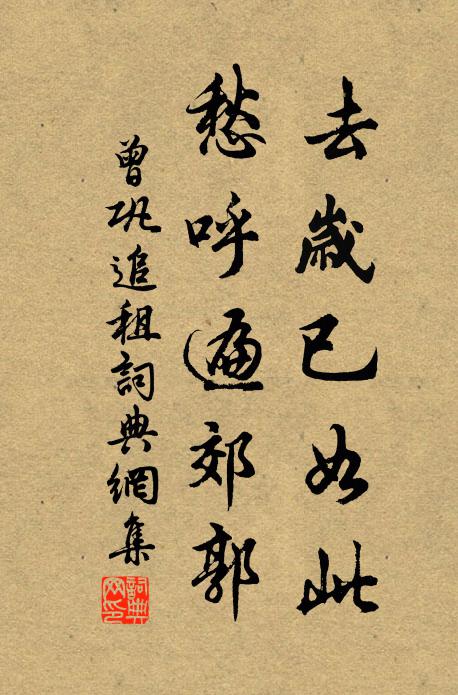 去歲已如此
愁呼遍郊郭
曾巩追租詞典網集
詞典網印